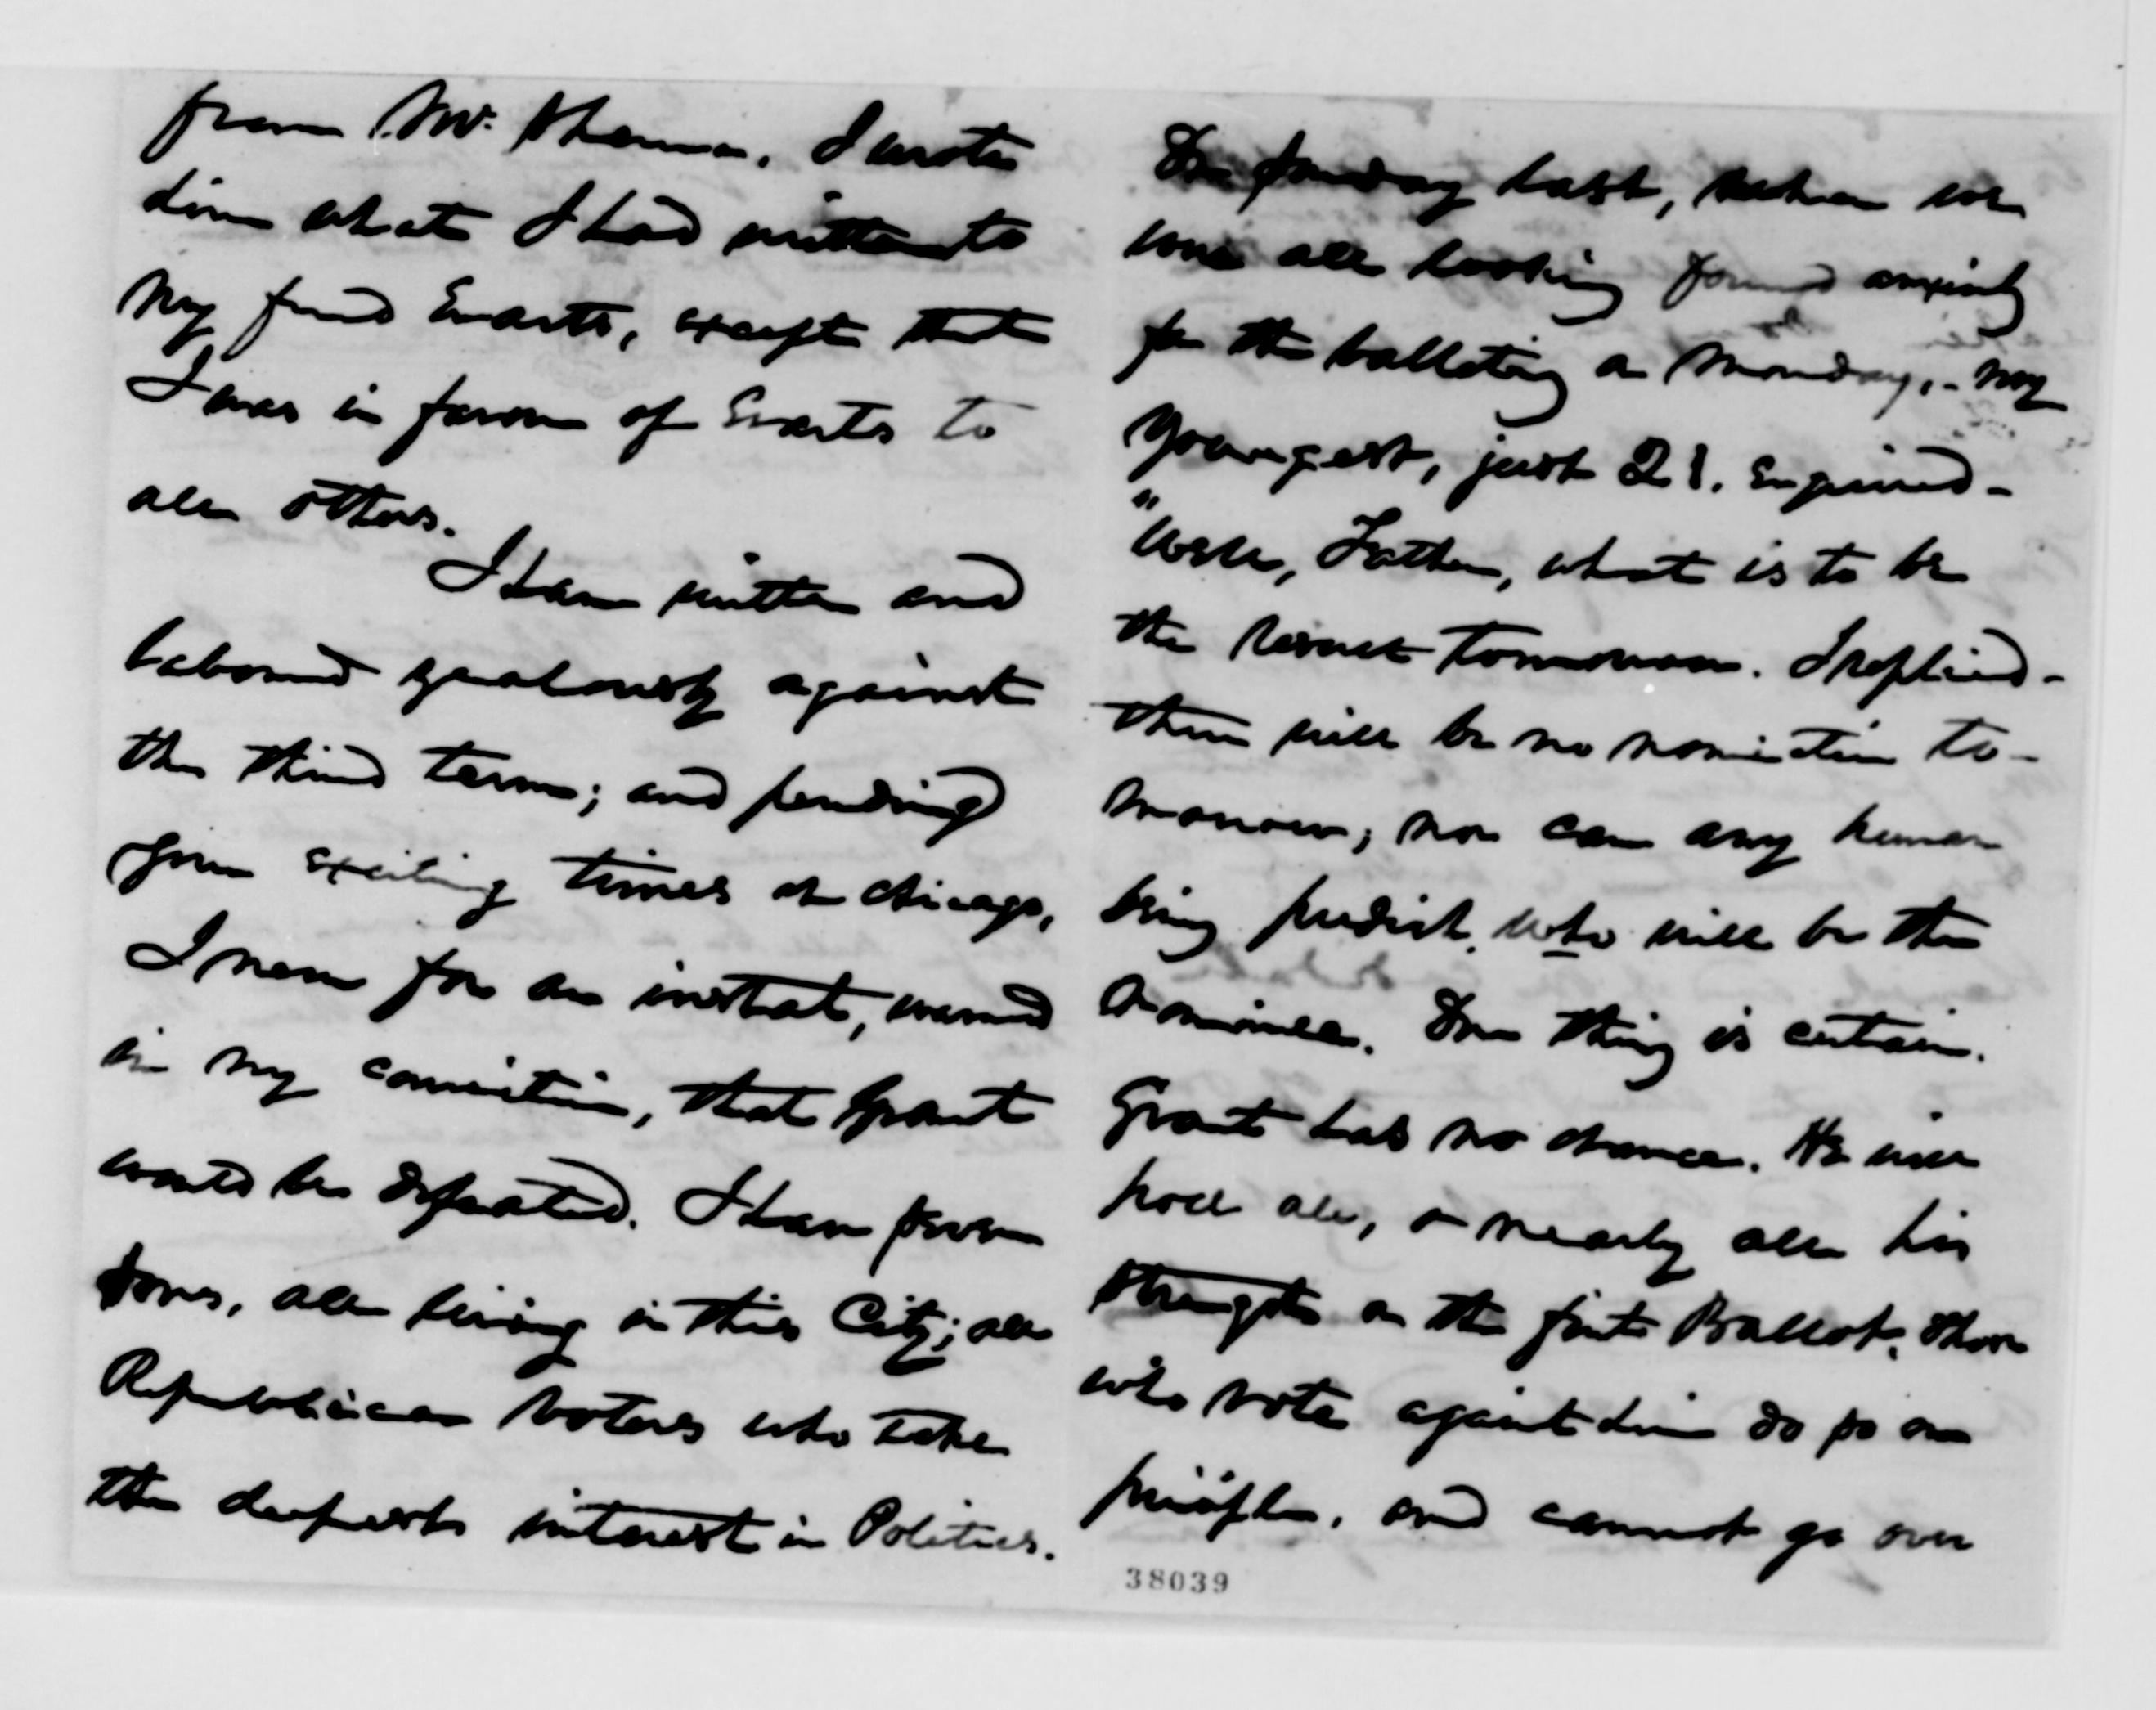 from Mr. Sherman. I wrote
him what I had written to
my friend Evarts, except that
I was in favor of Evarts to
all others.
I have written and
labored zealously against
the third term; and pending
your exciting times at Chicago,
I never for an instant, wavered
in my conviction, that Grant
would be defeated. I have seven
sons, all living in this City; all
Republican voters who take
the deepest interest in Politics.
On Sunday last, when we
were all looking forward anxiously
for the balloting on Monday,- my
youngest, just 21. Enquired-
"Well, Father, what is to be
the result tomorrow. I replied-
there will be no nomination to-
morrow; nor can any human
being predict, who will be the
nominee. One thing is certain.
Grant has no chance. He will
poll all, or nearly all his
strength on the first Ballot. Those
who vote against him do so on
principle, and cannot go over
38039